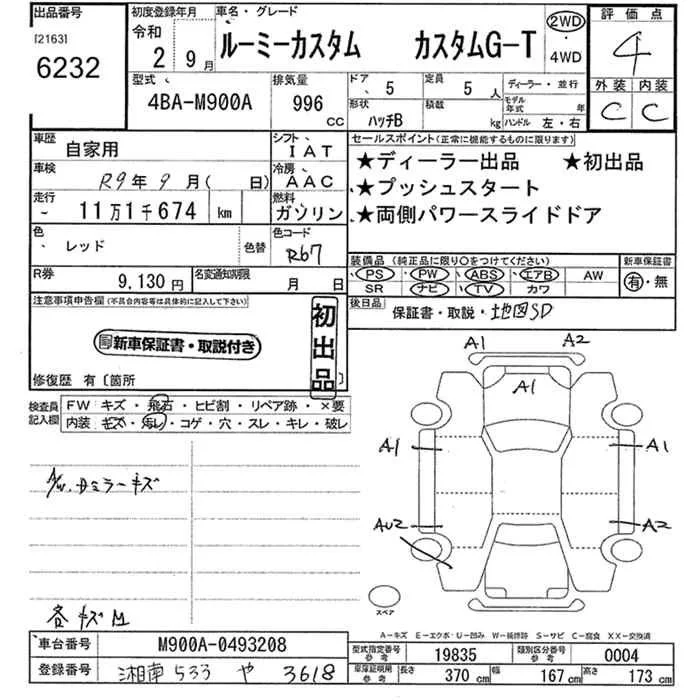 出品番号
[2163]
6232
初度登録年月
令和
2 9月
車名・グレード
ルーミーカスタム カスタムG-T
2WD
・
4WD
評価点
4
外装 内装
C C
型式
4BA-M900A
排気量
996
cc
ドア
5
形状
ハッチB
定員
5
人
積載
kg
ディーラー・並行
モデル年式
年
ハンドル 左・右
車歴
自家用
シフト
IAT
車検
R9年 9月( 日)
冷房
AAC
走行
~ 11万1千674 km
燃料
ガソリン
色
レッド
色替
色コード
R67
R券
9,130 円
名変通知期限
月 日
セールスポイント(正常に機能するものに限ります)
★ディーラー出品 ★初出品
★プッシュスタート
★両側パワースライドドア
装備品 (純正品に限り○をつけてください)
PS PW ABS エアB AW
SR ナビ TV カワ
新車保証書
有・無
後日品
保証書・取説・地図SD
注意事項申告欄(不具合内容等は具体的に記入して下さい)
新車保証書・取説付き
初出品
修復歴 有〔箇所
検査員
記入欄
FW キズ・飛石・ヒビ割・リペア跡・×要
内装・キズ・汚レ・コゲ・穴・スレ・キレ・破レ
ミラーキズ
各キズ
A1 A2
A1
A1 A1
AU2 A2
スペア
A-キズ E-エクボ・U-凹み W-補修跡 S-サビ C-腐食 XX-交換済
車台番号
M900A-0493208
登録番号
湘南 533 や 3618
型式指定番号
参考
19835
類別区分番号
参考
0004
車庫証明用
参考
長さ
370 cm
幅
167 cm
高さ
173 cm